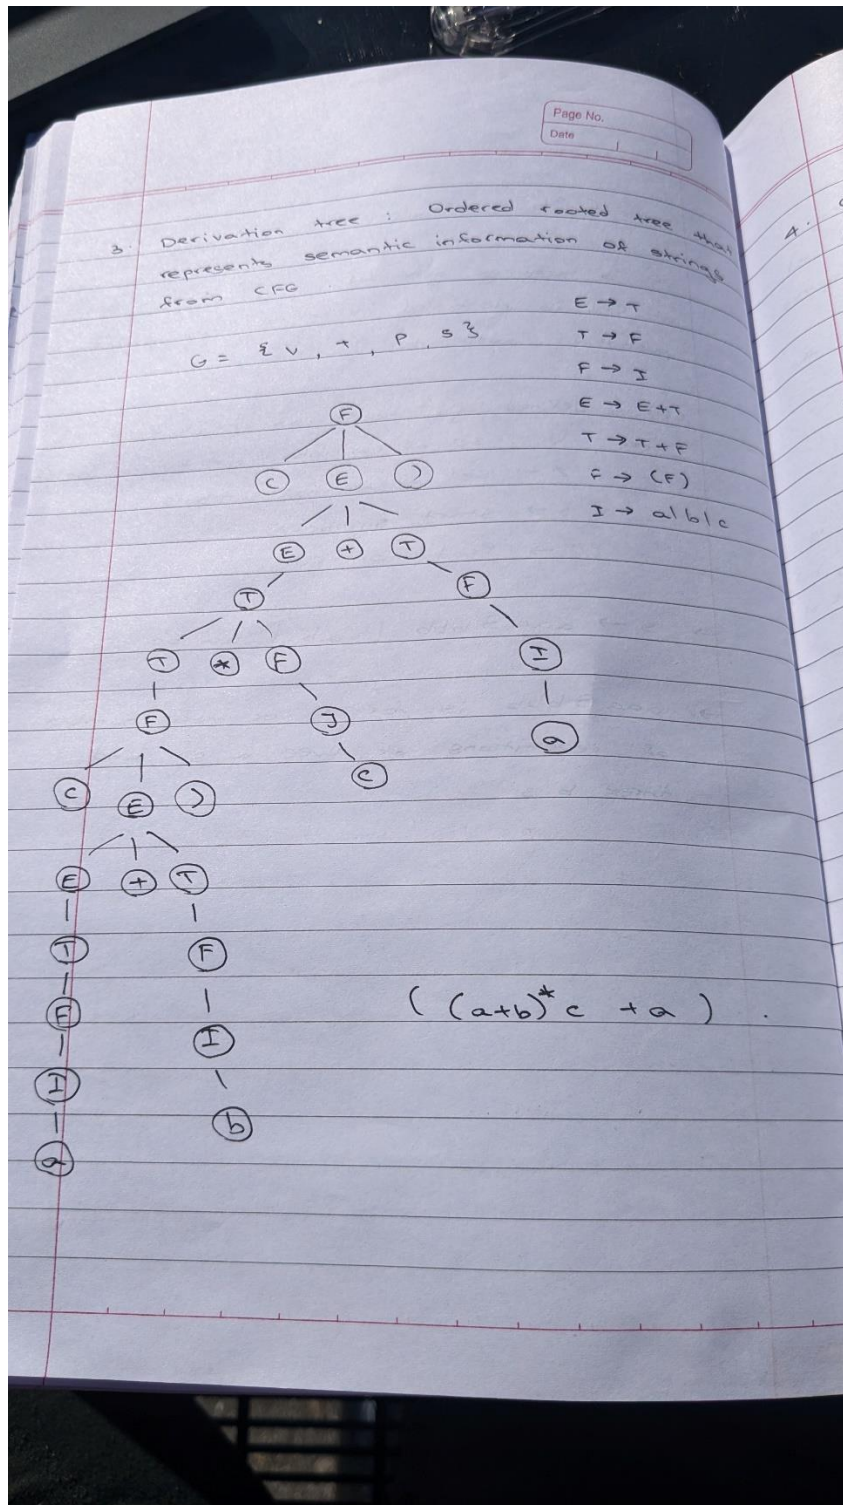 Page No.
Date
3. Derivation tree : Ordered rooted tree that
represents semantic information of strings
from CFG
G = { V , T , P , S }
E → T
T → F
F → I
E → E + T
T → T + F
F → (F)
I → a|b|c
F
( E )
E + T
T F
T * F I
F I a
( E ) c
E + T
T F
F I
I b
a
( (a+b)* c + a ) .
4.